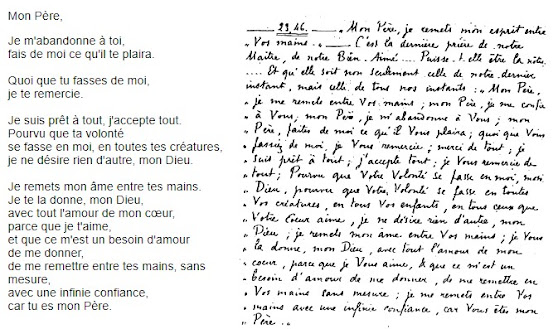 Mon Père,
Je m'abandonne à toi,
fais de moi ce qu'il te plaira.
Quoi que tu fasses de moi,
je te remercie.
Je suis prêt à tout, j'accepte tout.
Pourvu que ta volonté
se fasse en moi, en toutes tes créatures,
je ne désire rien d'autre, mon Dieu.
Je remets mon âme entre tes mains.
Je te la donne, mon Dieu,
avec tout l'amour de mon cœur,
parce que je t'aime,
et que ce m'est un besoin d'amour
de me donner,
de me remettre entre tes mains, sans
mesure,
avec une infinie confiance,
car tu es mon Père.
23,46. „ Mon Père, je remets mon esprit entre
„ Vos mains „ C'est la dernière prière de notre
Maître, de notre Bien Aimé .... Puisse-t-elle être la nôtre
.... Et qu'elle soit non seulement celle de notre dernier
instant, mais celle de tous nos instants : „ Mon Père,
„ je me remets entre Vos mains ; mon Père, je me confie
„ à Vous, mon Père, je m'abandonne à Vous ; mon
„ Père, faites de moi ce qu'il Vous plaira ; quoi que Vous
„ fassiez de moi, je Vous remercie ; merci de tout ; je
„ suis prêt à tout ; j'accepte tout ; je Vous remercie de
„ tout ; Pourvu que Votre Volonté se fasse en moi, mon
„ Dieu, pourvu que Votre Volonté se fasse en toutes
„ Vos créatures, en tous Vos enfants, en tous ceux que
„ Votre Cœur aime, je ne désire rien d'autre, mon
„ Dieu ; je remets mon âme entre Vos mains ; je Vous
„ la donne, mon Dieu, avec tout l'amour de mon
„ cœur, parce que je Vous aime, & que ce m'est un
„ besoin d'amour de me donner, de me remettre en
„ Vos mains sans mesure ; je me remets entre Vos
„ mains avec une infinie confiance, car Vous êtes mon
„ Père ..